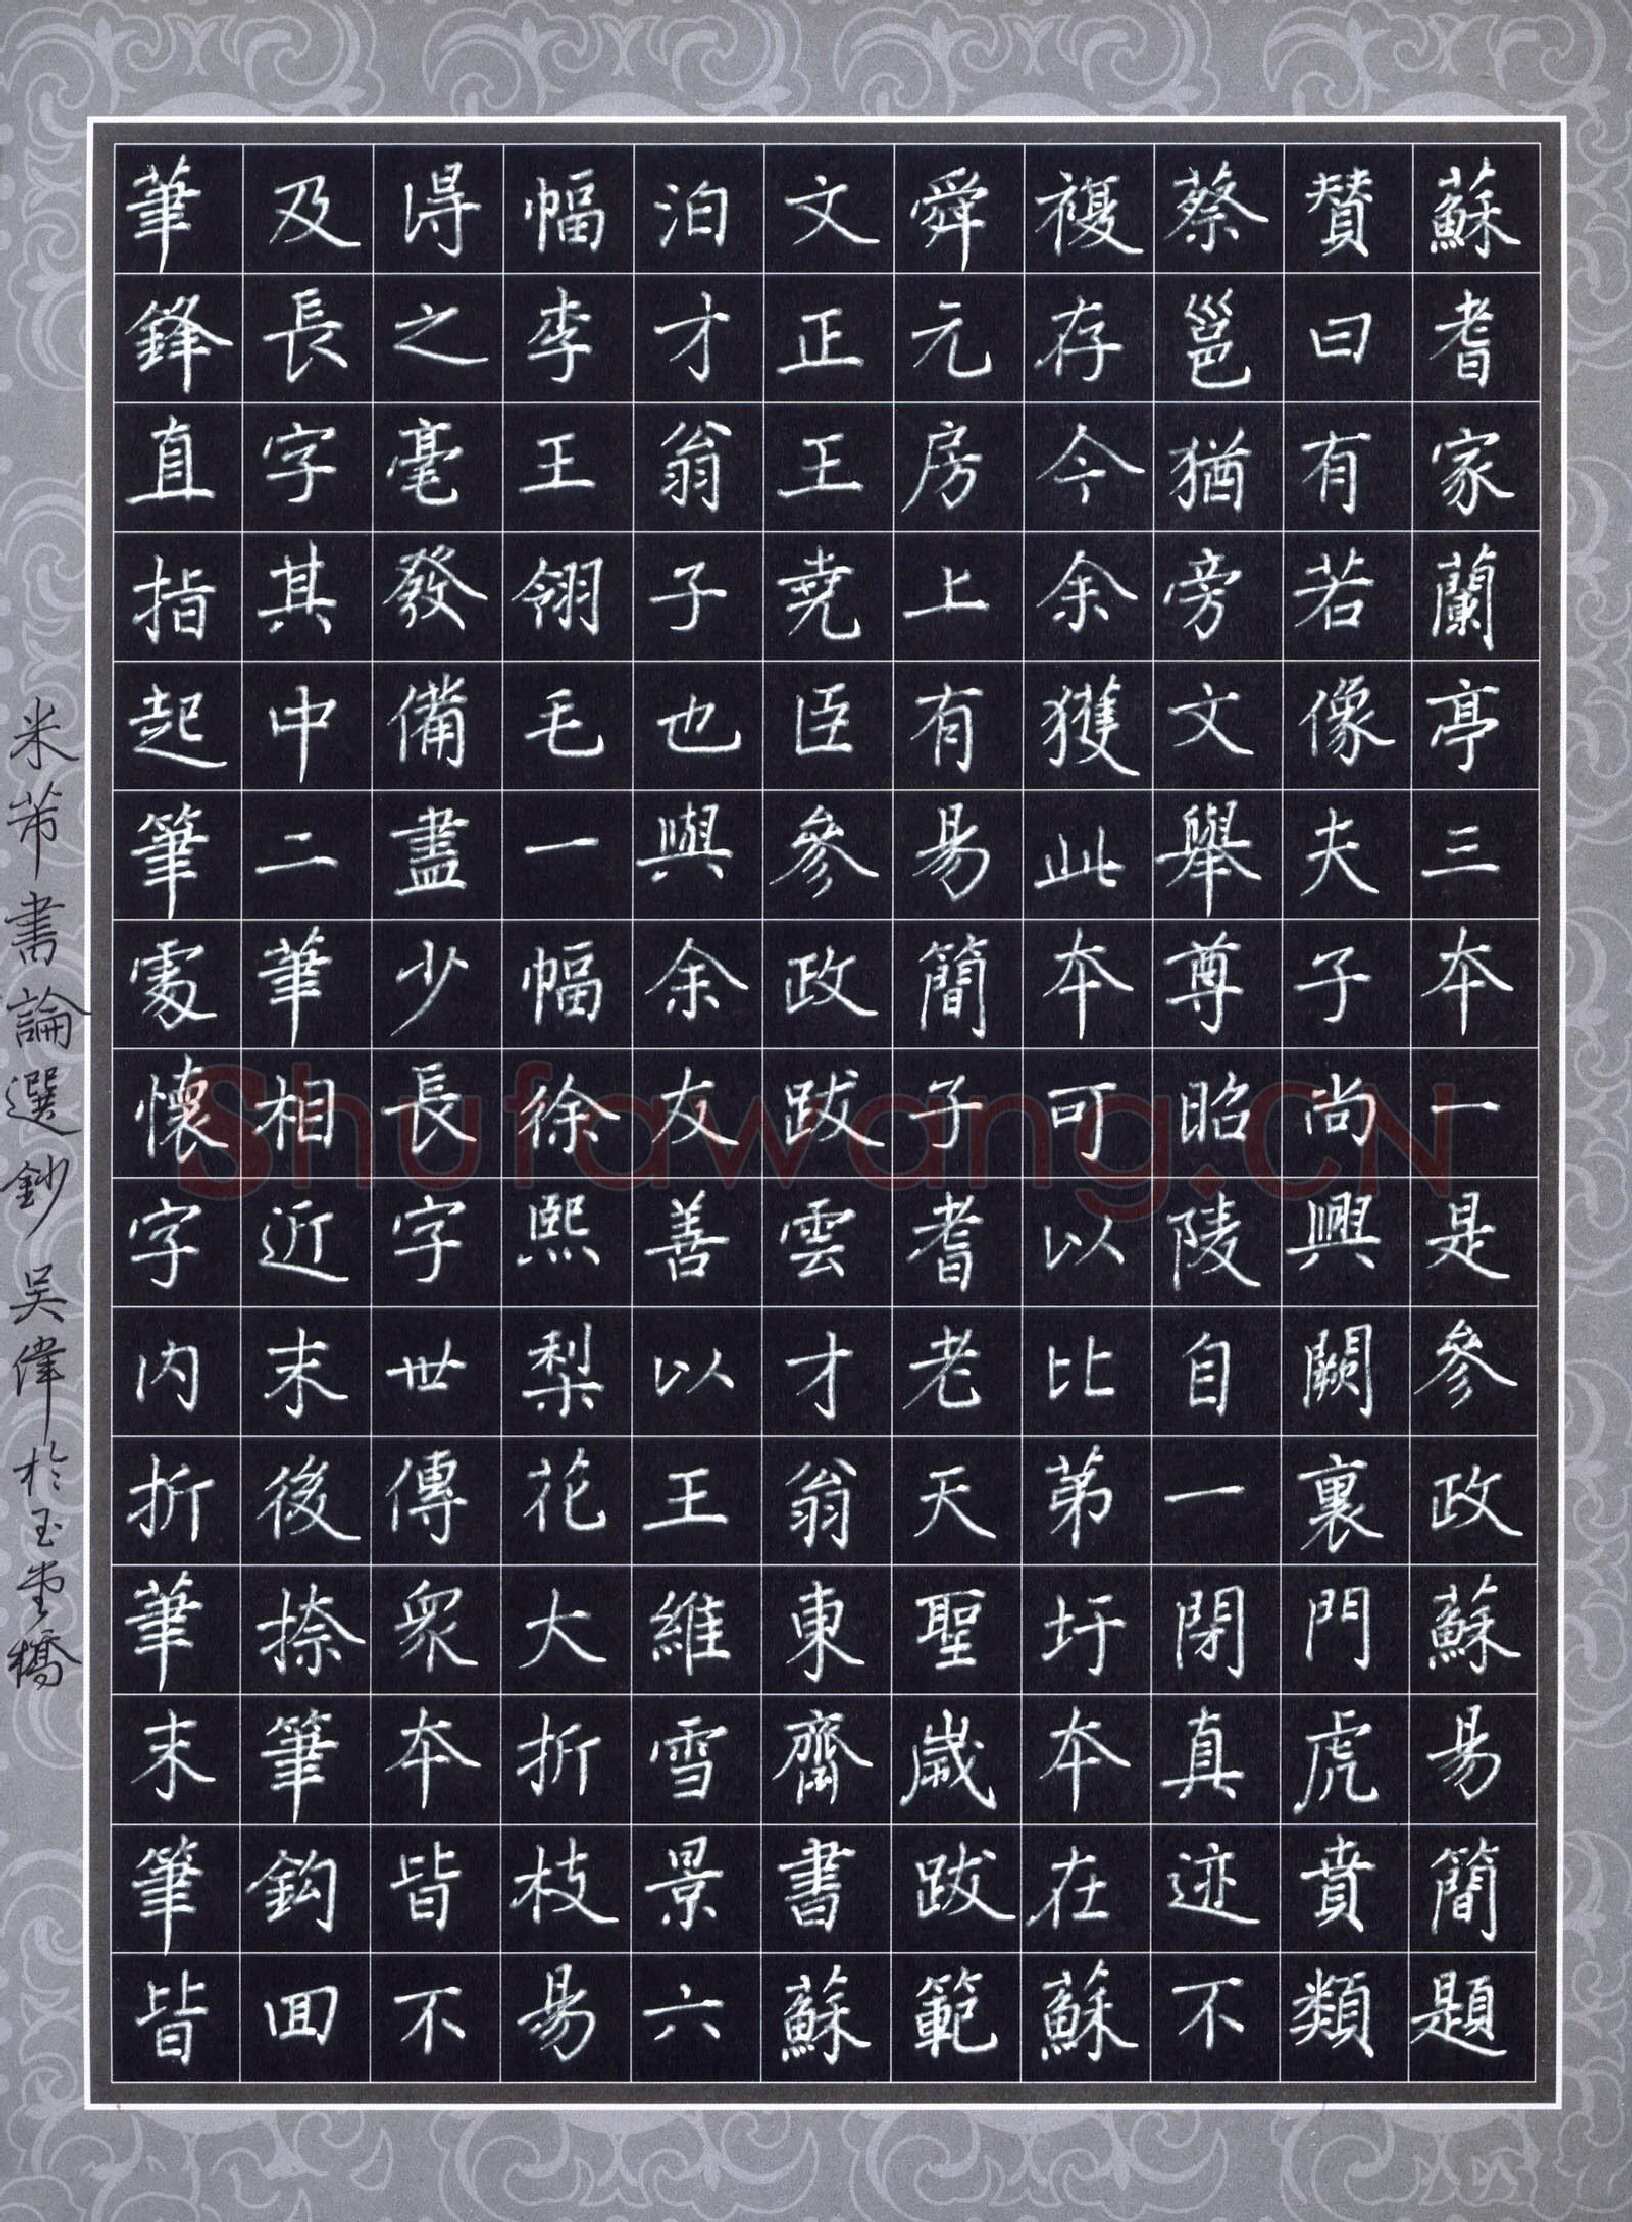 蘇耆家蘭亭三本一是參政蘇易簡題
贊曰有若像夫子尚興闕裏門虎賁類
蔡邕猶旁文舉尊昭陵自一閉真迹不
複存今余獲此本可以比第圩本在蘇
舜元房上有易簡子耆老天聖歲跋範
文正王堯臣參政跋雲才翁東齋書蘇
泊才翁子也與余友善以王維雪景六
幅李王翎毛一幅徐熙梨花大折枝易
得之毫發備盡少長字世傳衆本皆不
及長字其中二筆相近末後捺筆鈎回
筆鋒直指起筆處懷字内折筆末筆皆
米芾書論選鈔 吴偉於玉堂橋
Shufawang.CN